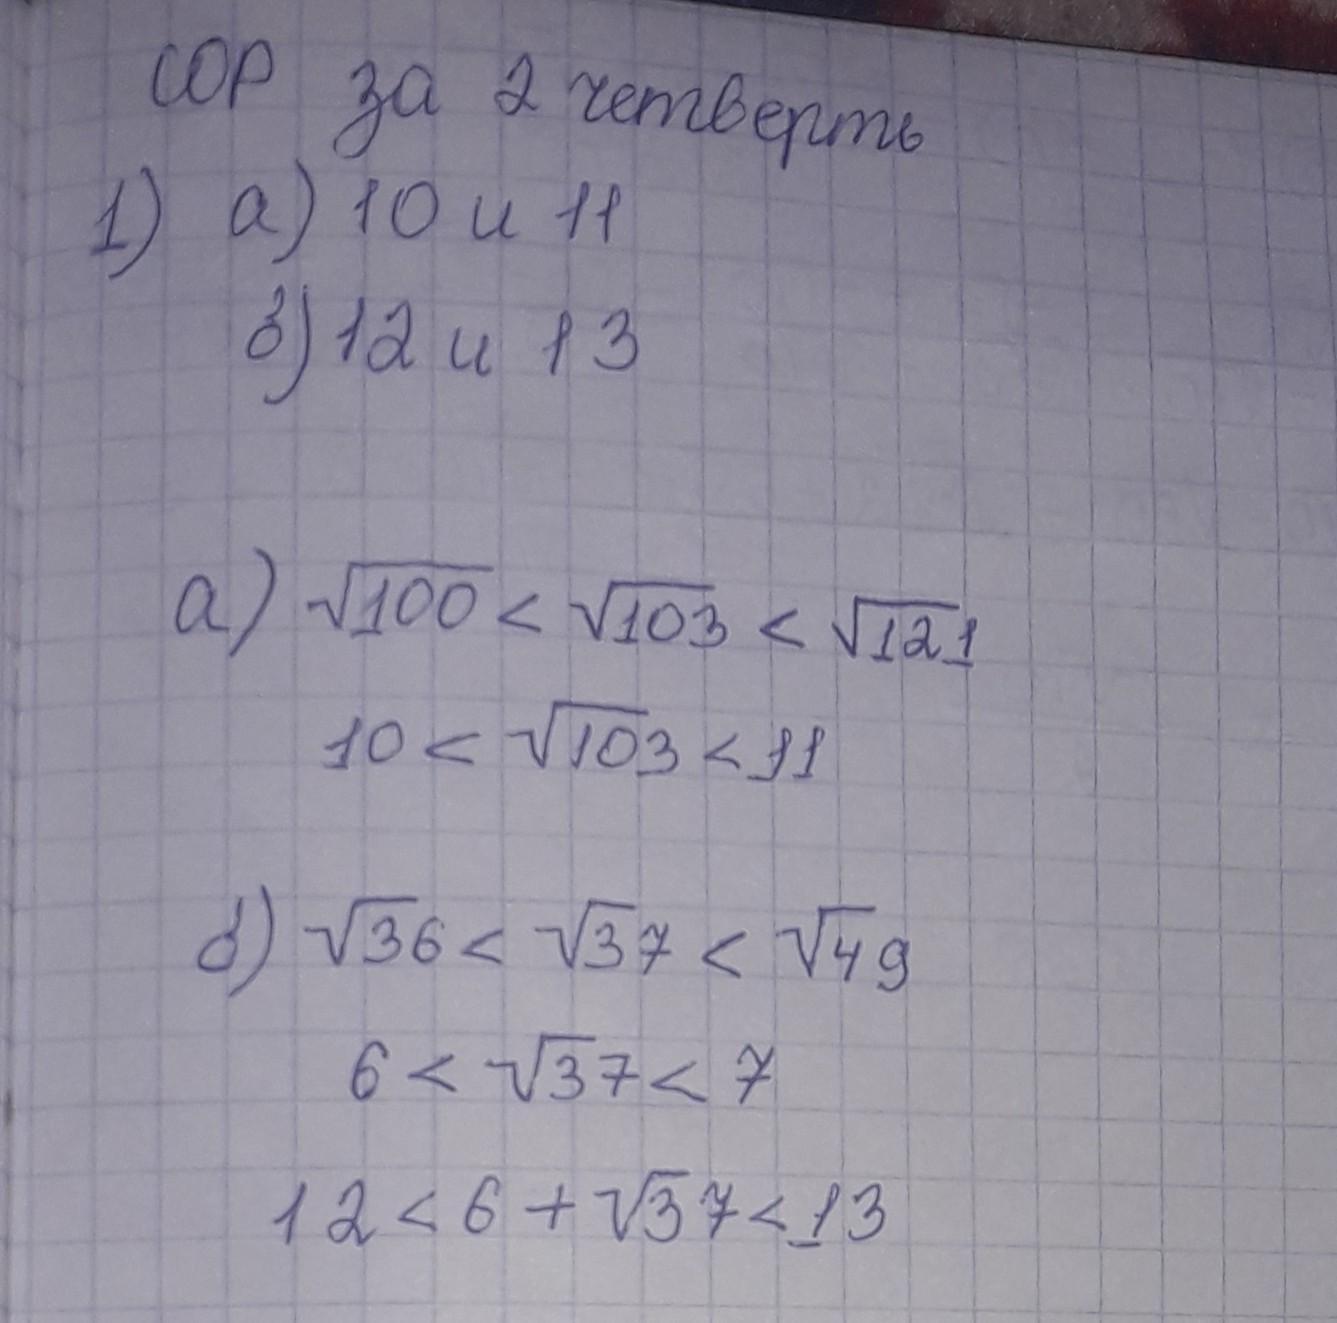 СОР за 2 четверть
1) а) 10 и 11
в) 12 и 13
а) √100 < √103 < √121
10 < √103 < 11
б) √36 < √37 < √49
6 < √37 < 7
12 < 6 + √37 < 13